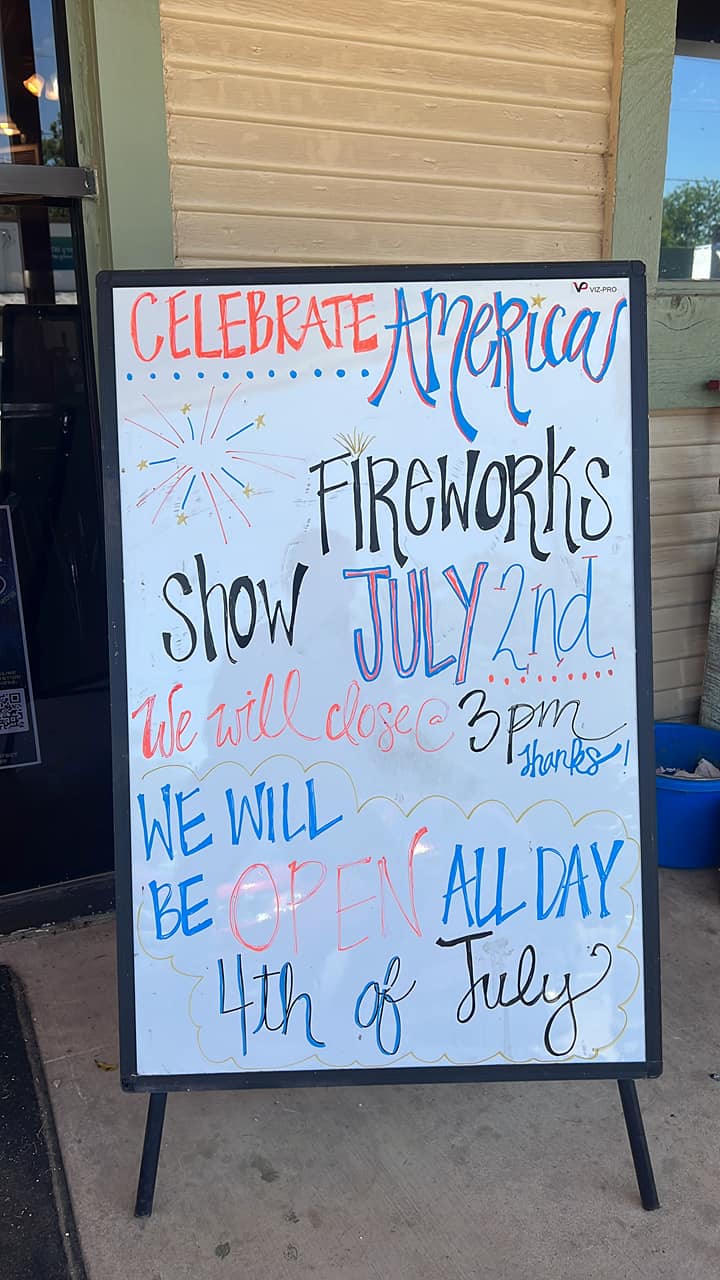 VP VIZ-PRO
CELEBRATE AMERICA
FIREWORKS
SHOW JULY 2nd
We will close @ 3pm
Thanks!
WE WILL
BE OPEN ALL DAY
4th of July